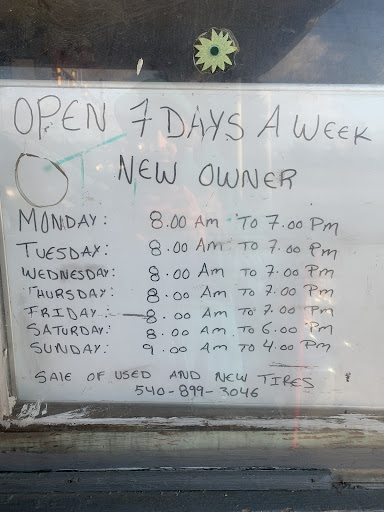 OPEN 7 DAYS A WEEK
NEW OWNER
MONDAY: 8.00 Am TO 7.00 Pm
TUESDAY: 8.00 Am TO 7.00 Pm
WEDNESDAY: 8.00 Am TO 7.00 Pm
THURSDAY: 8.00 Am TO 7.00 Pm
FRIDAY: 8.00 Am TO 7.00 Pm
SATURDAY: 8.00 Am TO 6.00 Pm
SUNDAY: 9.00 Am TO 4.00 Pm
SALE OF USED AND NEW TIRES
540-899-3046